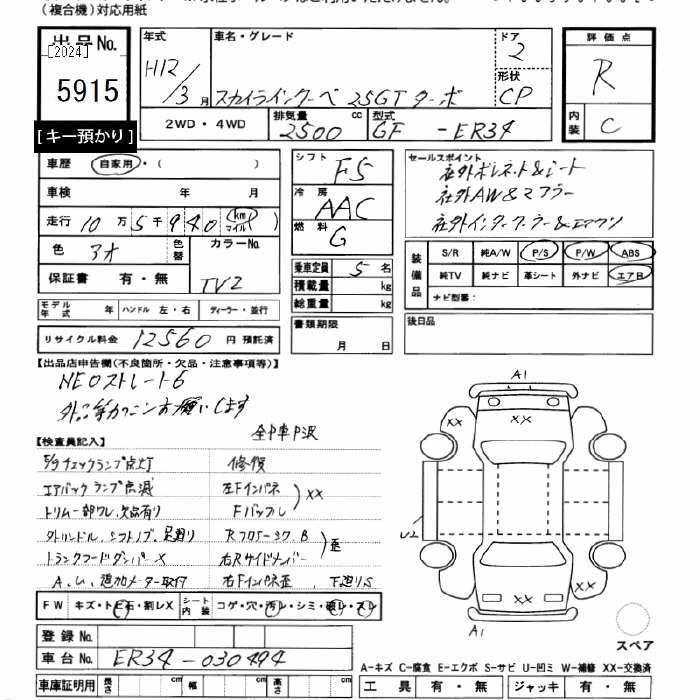 （複合機）対応用紙
出品No.
[2024]
5915
[キー預かり]
年式
H12/3月
車名・グレード
スカイラインクーペ 25GTターボ
ドア
2
形状
CP
評価点
R
内装
C
2WD・4WD
排気量
2500 cc
型式
GF - ER34
車歴 自家用・( )
車検 年 月
走行 10万5千940 km マイル )
色 アオ
色替
カラーNo.
TV2
保証書 有・無
モデル年式 ハンドル 左・右 ディーラー・並行
リサイクル料金 12560 円 預託済
シフト
F5
冷房
AAC
燃料
G
乗車定員 5 名
積載量 kg
総重量 kg
書類期限
月 日
セールスポイント
社外ボンネット&シート
社外AW&マフラー
社外インタークーラー&エアクリ
装備品
S/R 純A/W P/S P/W ABS
純TV 純ナビ 革シート 外ナビ エアB
ナビ型番：
後日品
【出品店申告欄(不良箇所・欠品・注意事項等)】
NEOストレート6
外品等カクニンお願いします
【検査員記入】
E/gチェックランプ点灯
エアバックランプ点滅
トリム一部ワレ,欠品有り
トランクフードダンパー×
追加メーター取付
修復
左Fインパネ
XX
Fバッフル
右Rサイドメンバー
右Fインパネ歪
歪
下廻りS
FW キズ・トビ石・割レX
シート内装 コゲ・穴・汚レ・シミ・破レ・スレ
登録No.
車台No. ER34-030494
車庫証明用 長さ cm 幅 cm 高さ cm
A1
XX
XX
U2
XX
XX
A1
スペア
A-キズ C-腐食 E-エクボ S-サビ U-凹ミ W-補修 XX-交換済
工具 有・無 ジャッキ 有・無